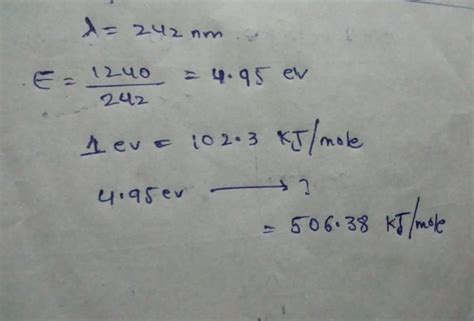 λ = 242 nm
E = 1240/242 = 4.95 ev
1 ev = 102.3 KJ/mole
4.95 ev ⟶ ?
= 506.38 KJ/mole